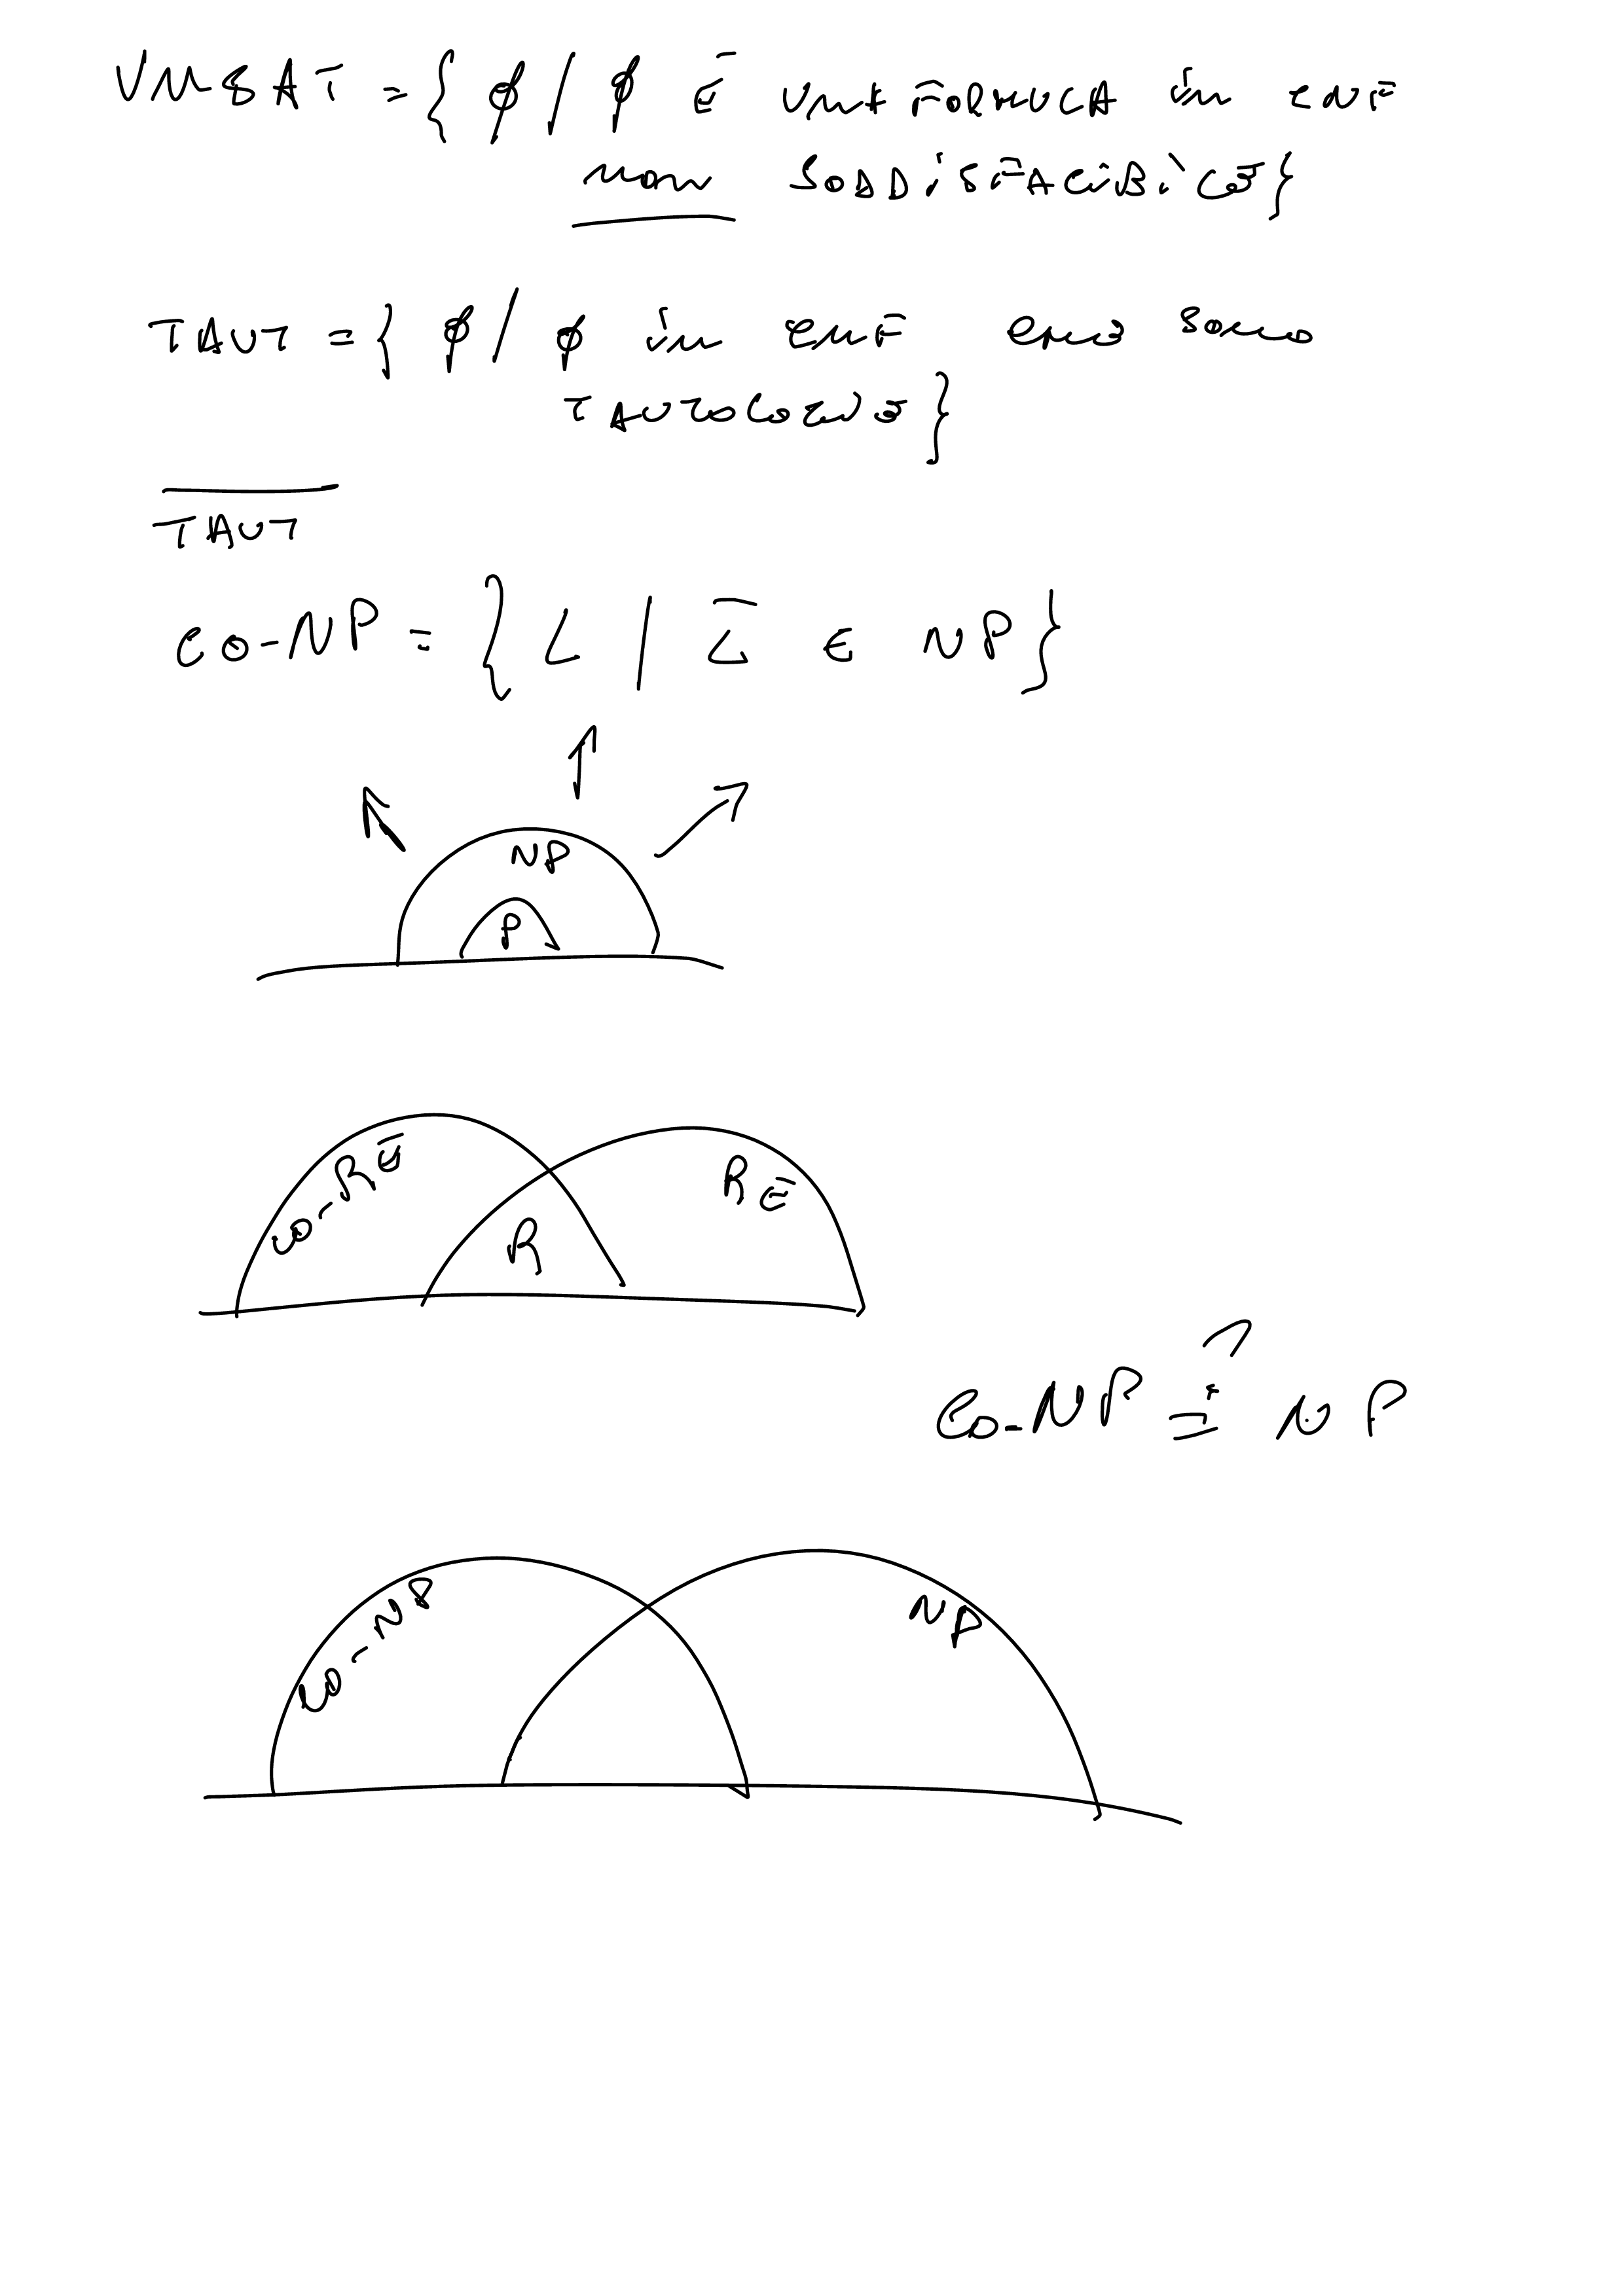 UNSAT = { φ / φ È UNA FORMULA in CNF
non SODDISFACIBILE }
TAUT = { φ / φ in CNF CHE SONO
TAUTOLOGIE }
T̅A̅U̅T̅
CO-NP = { L / L̅ ∈ NP }
NP
P
CO-RE
RE
R
CO-NP = NP
?
CO-NP
NP